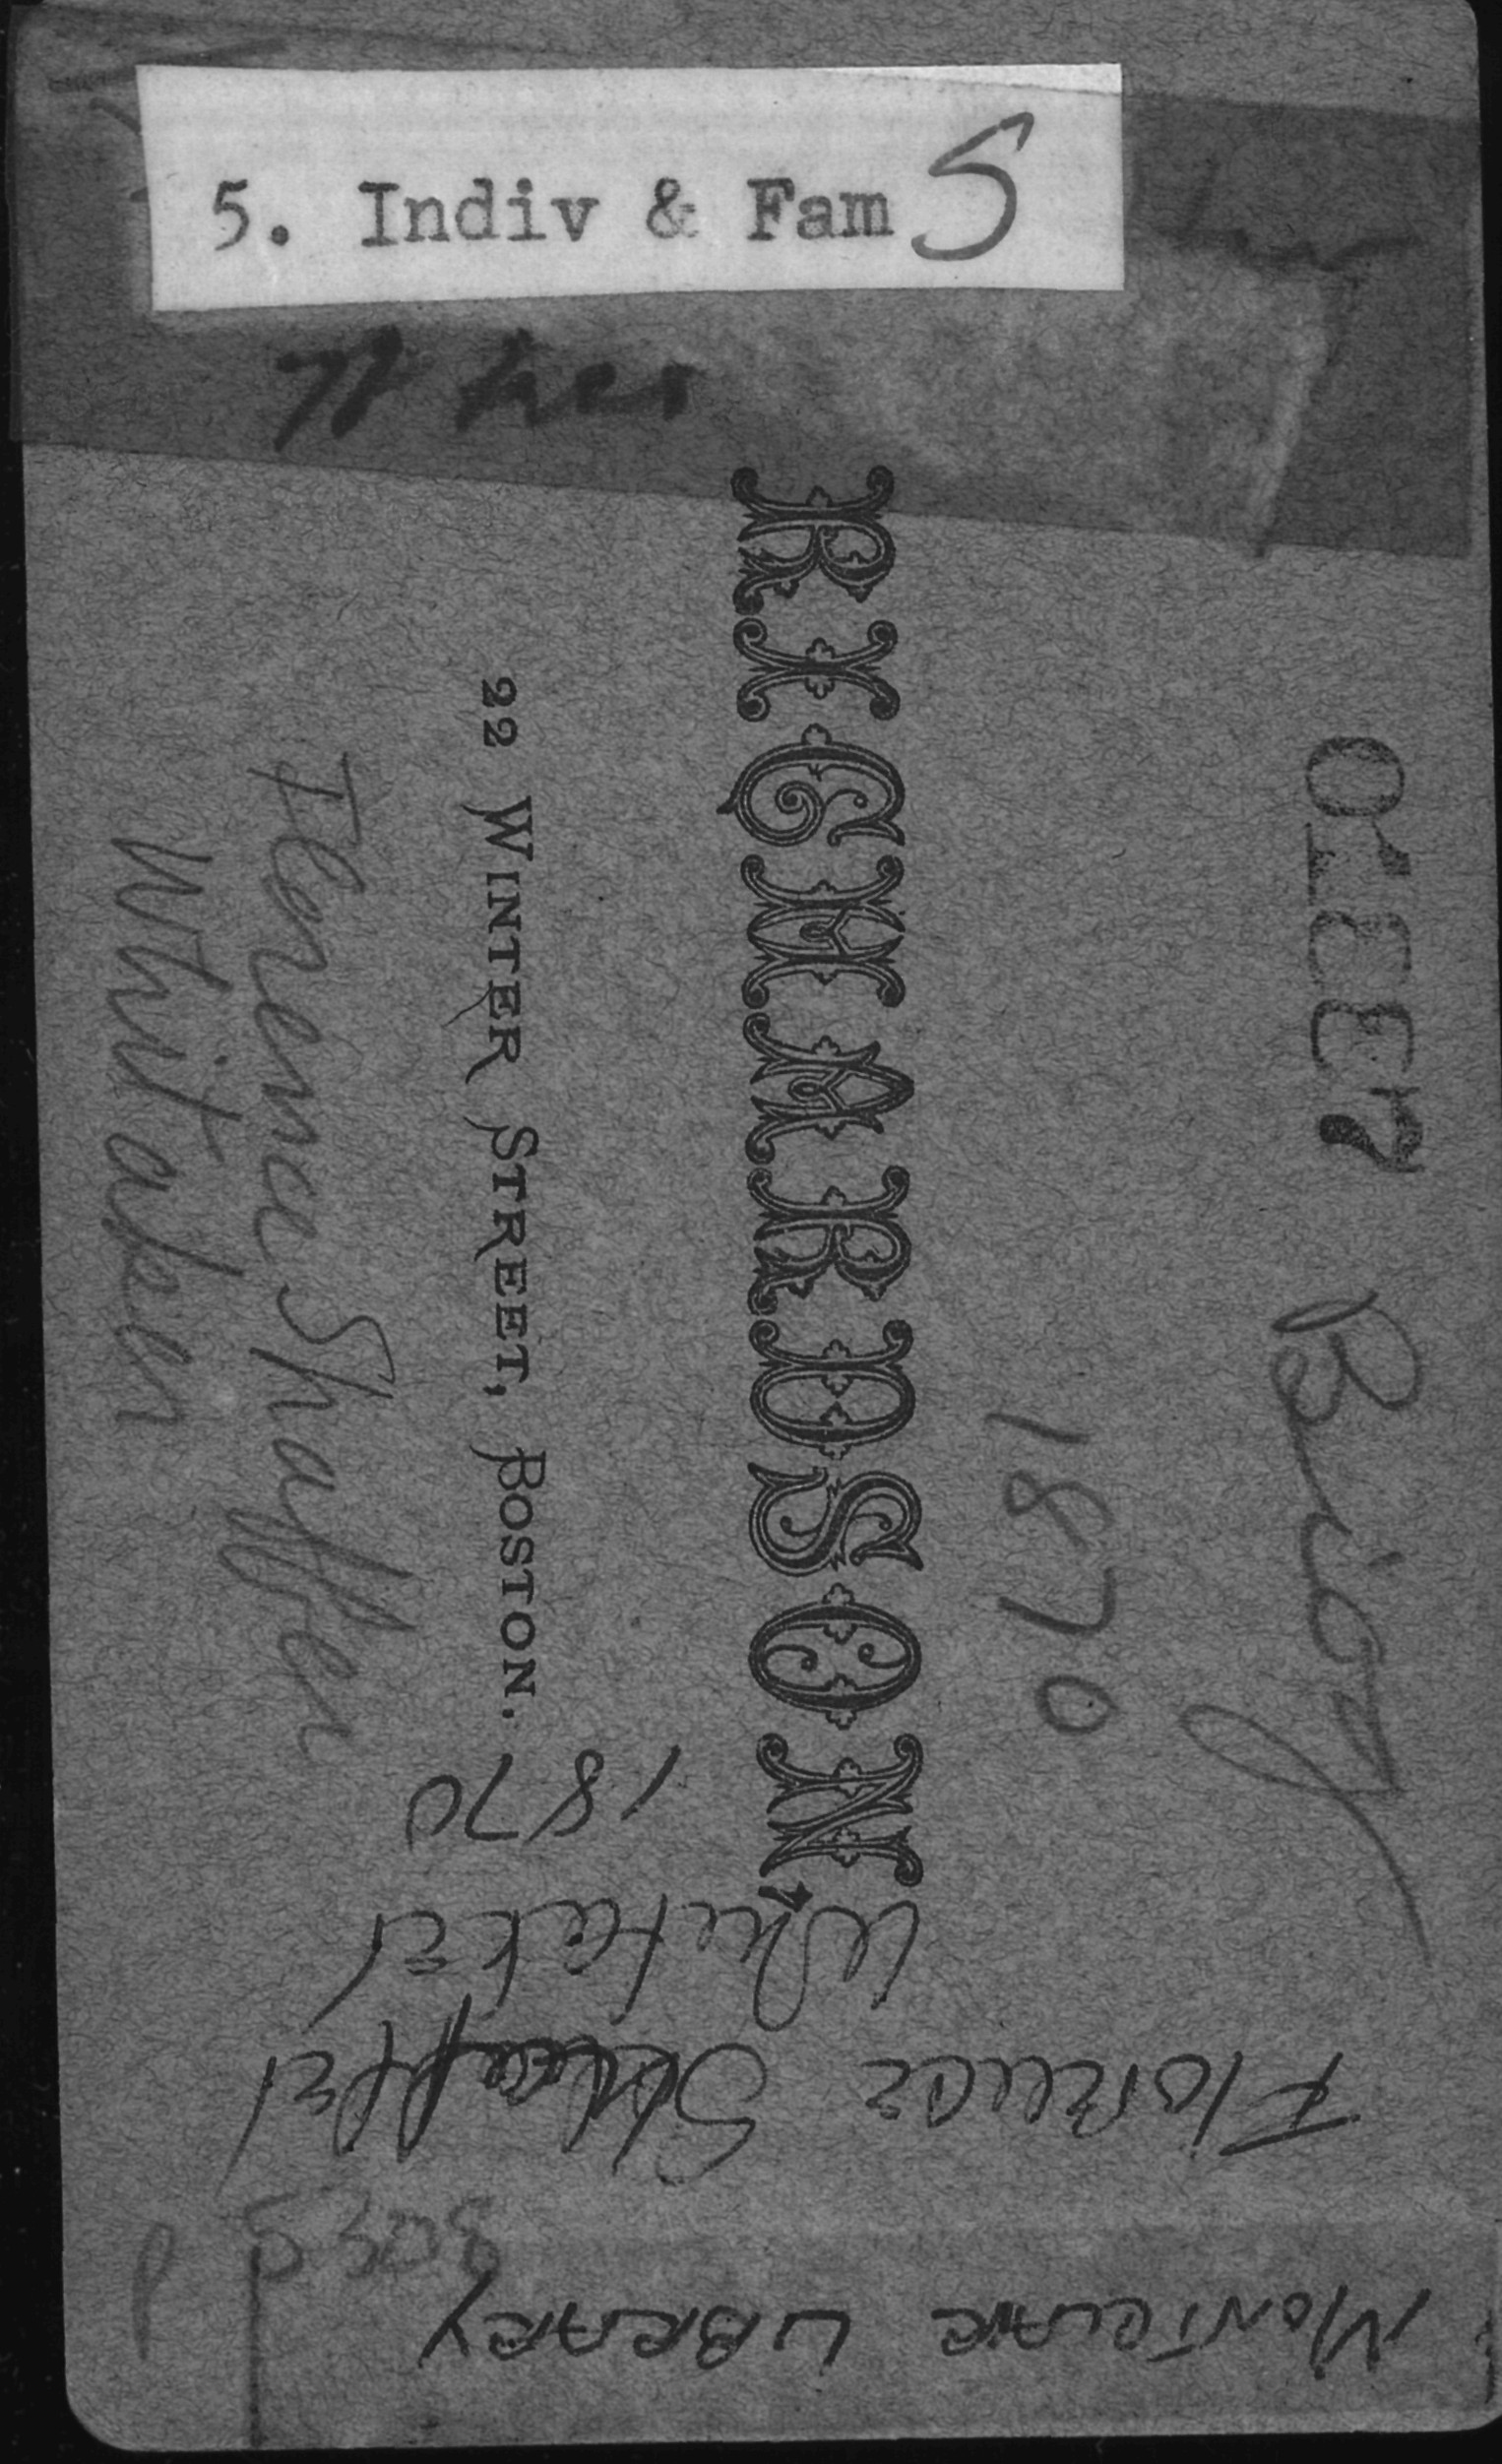 5. Indiv & Fam S
RICHARDSON
22 WINTER STREET, BOSTON.
Biog
1870
Florence Shaffer
Whitaker
1870
Florence Shaffer
Whitaker
MONTCLAIR LIBRARY